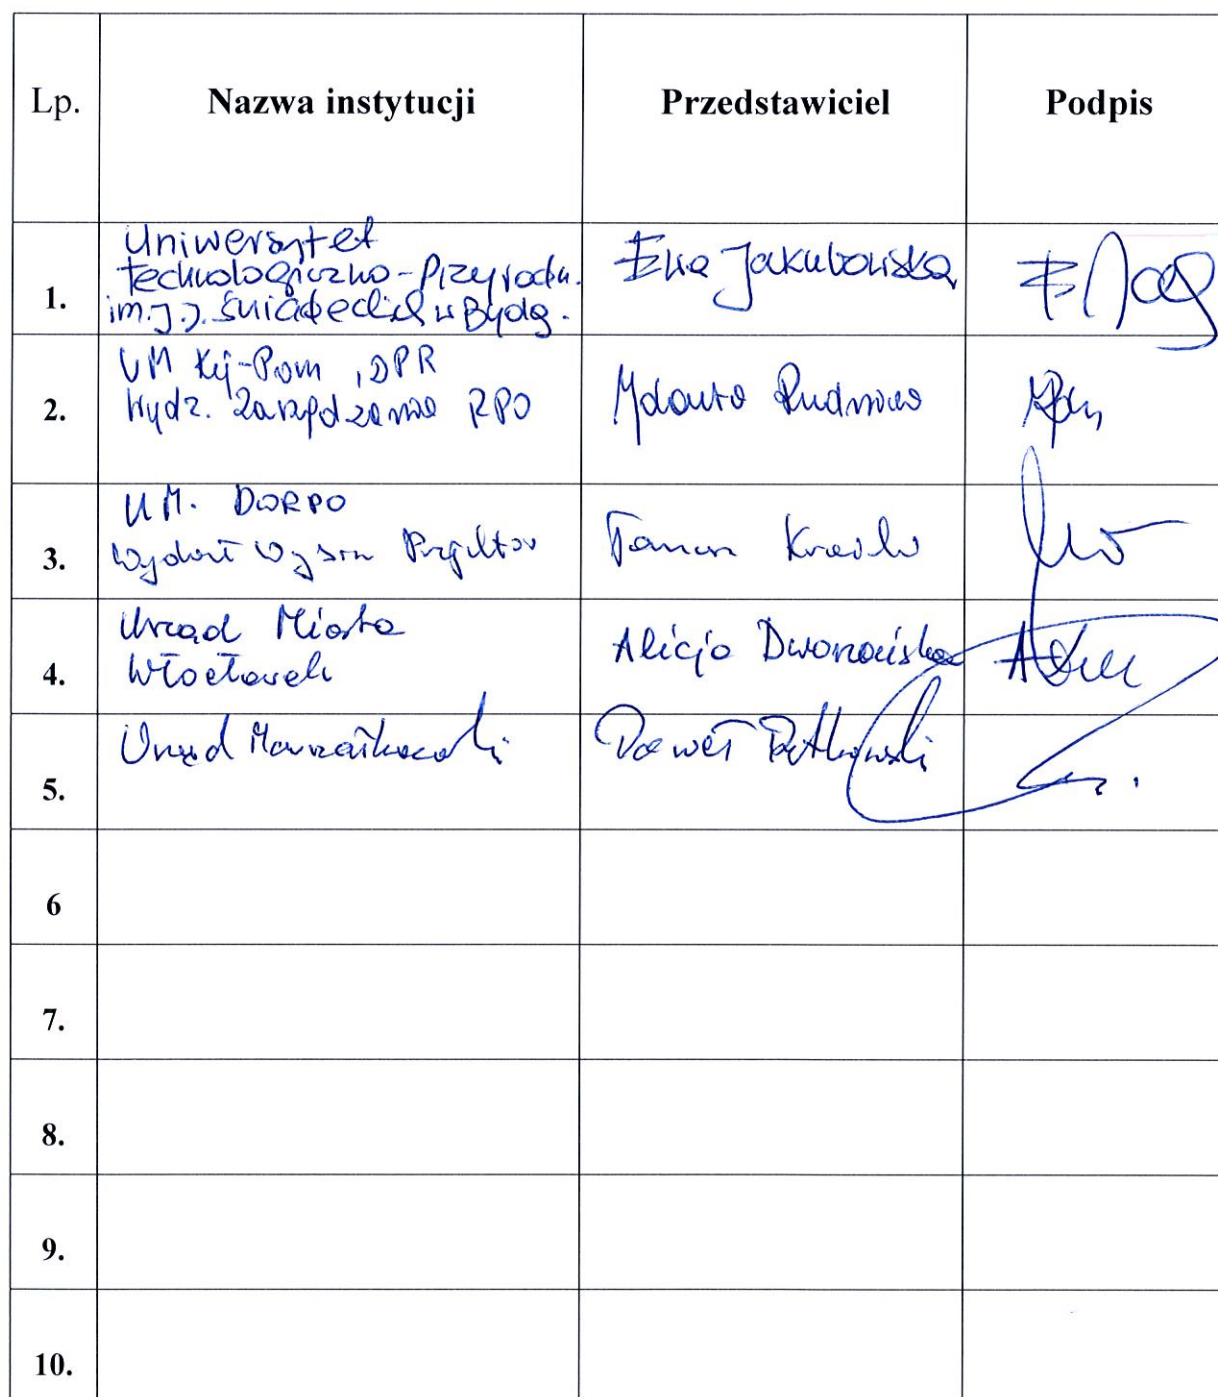 Lp. Nazwa instytucji Przedstawiciel Podpis
Uniwersytet
technologiczno-Przyrodn.
1. im. J. J. Śniadeckich w Bydg. Ewa Jakubowska
UM Kuj-Pom, DPR
2. Wydz. Zarządzania RPO Jolanta Rudnicka
UM. DWRPO
3. Wydział Projektów
Urząd Miasta
4. Włocławek Alicja
5. Urząd Marszałkowski Paweł
6
7.
8.
9.
10.